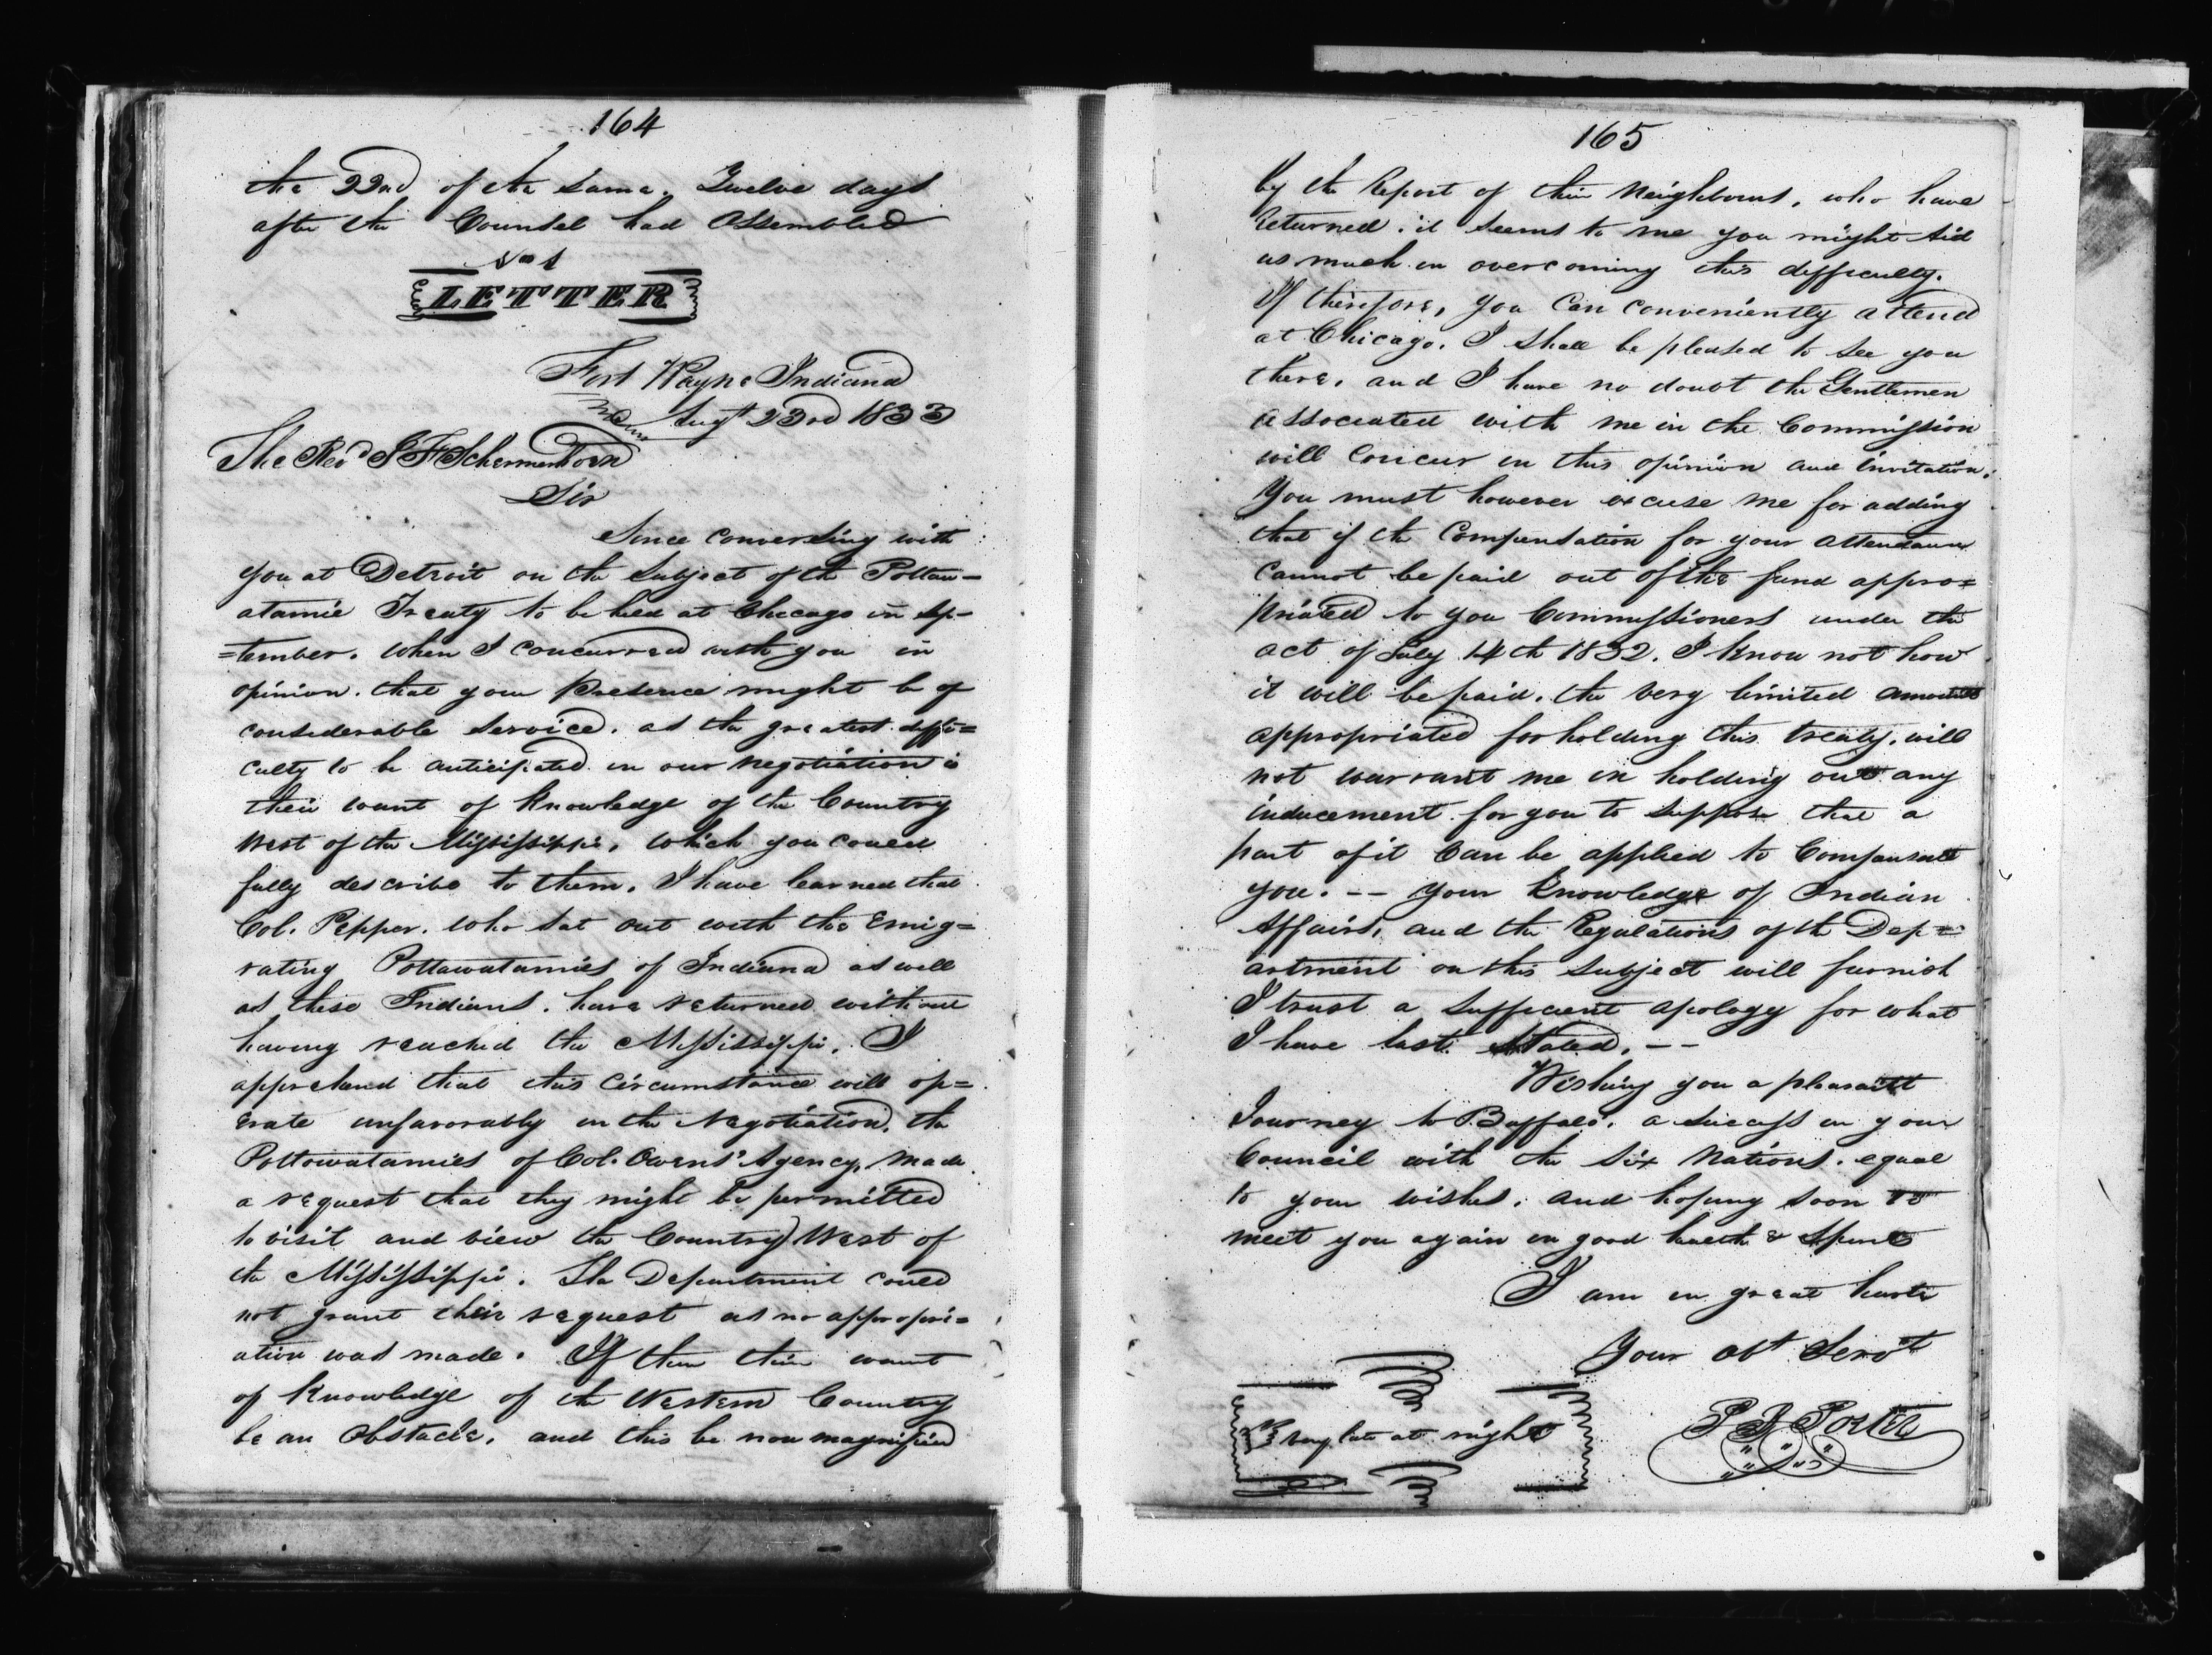 164
the 22nd of the Same. Twelve days
after the Counsel had Assembled
No 1
LETTER
Fort Wayne Indiana
Augt 23rd 1833
The Revd J F Schermerhorn
Sir
Since Conversing with
you at Detroit on the Subject of the Pottaw-
atamie Treaty to be held at Chicago in Sep-
=tember. When I concurred with you in
opinion. that your Presence might be of
considerable Service. as the greatest diffi=
culty to be anticipated in our negotiation is
their want of Knowledge of the Country
West of the Mississippi, which you could
fully describe to them. I have learned that
Col. Pepper. who Sat out with the Emig=
rating Pottawatamies of Indiana as well
as these Indians. have returned without
having reached the Mississippi. I
apprehend that this Circumstance will op=
erate unfavorably in the Negotiation. the
Pottowatamies of Col. Owens' Agency, made
a request that they might be permitted
to visit and view the Country West of
the Mississippi. The Department could
not grant their request as no appropri=
ation was made. If then their want
of Knowledge of the Western Country
be an Obstacle. and this be now magnified
165
by the Report of their Neighbours. who have
Returned. it Seems to me you might Aid
us much in overcoming this difficulty.
If therefore, you Can Conveniently attend
at Chicago. I Shall be pleased to See you
there. and I have no doubt the Gentlemen
associated with me in the Commission
will Concur in this opinion and invitation.
You must however excuse me for adding
that if the Compensation for your Attendance
Cannot be paid out of the fund appro=
priated to you Commissioners under the
act of July 14th 1832. I Know not how
it will be paid. the very limited amount
appropriated for holding this treaty. will
not warrant me in holding out any
inducement for you to Suppose that a
part of it Can be applied to Compensate
you. -- Your Knowledge of Indian
Affairs, and the Regulations of the Dep=
artment on this Subject will furnish
I trust a Sufficient apology for what
I have last Stated. --
Wishing you a pleasant
Journey to Buffalo. a Success in your
Council with the Six Nations. equal
to your wishes. and hoping Soon to
meet you again in good health & Spirits
I am in great haste
Your obt Servt
very late at night
P B Porter